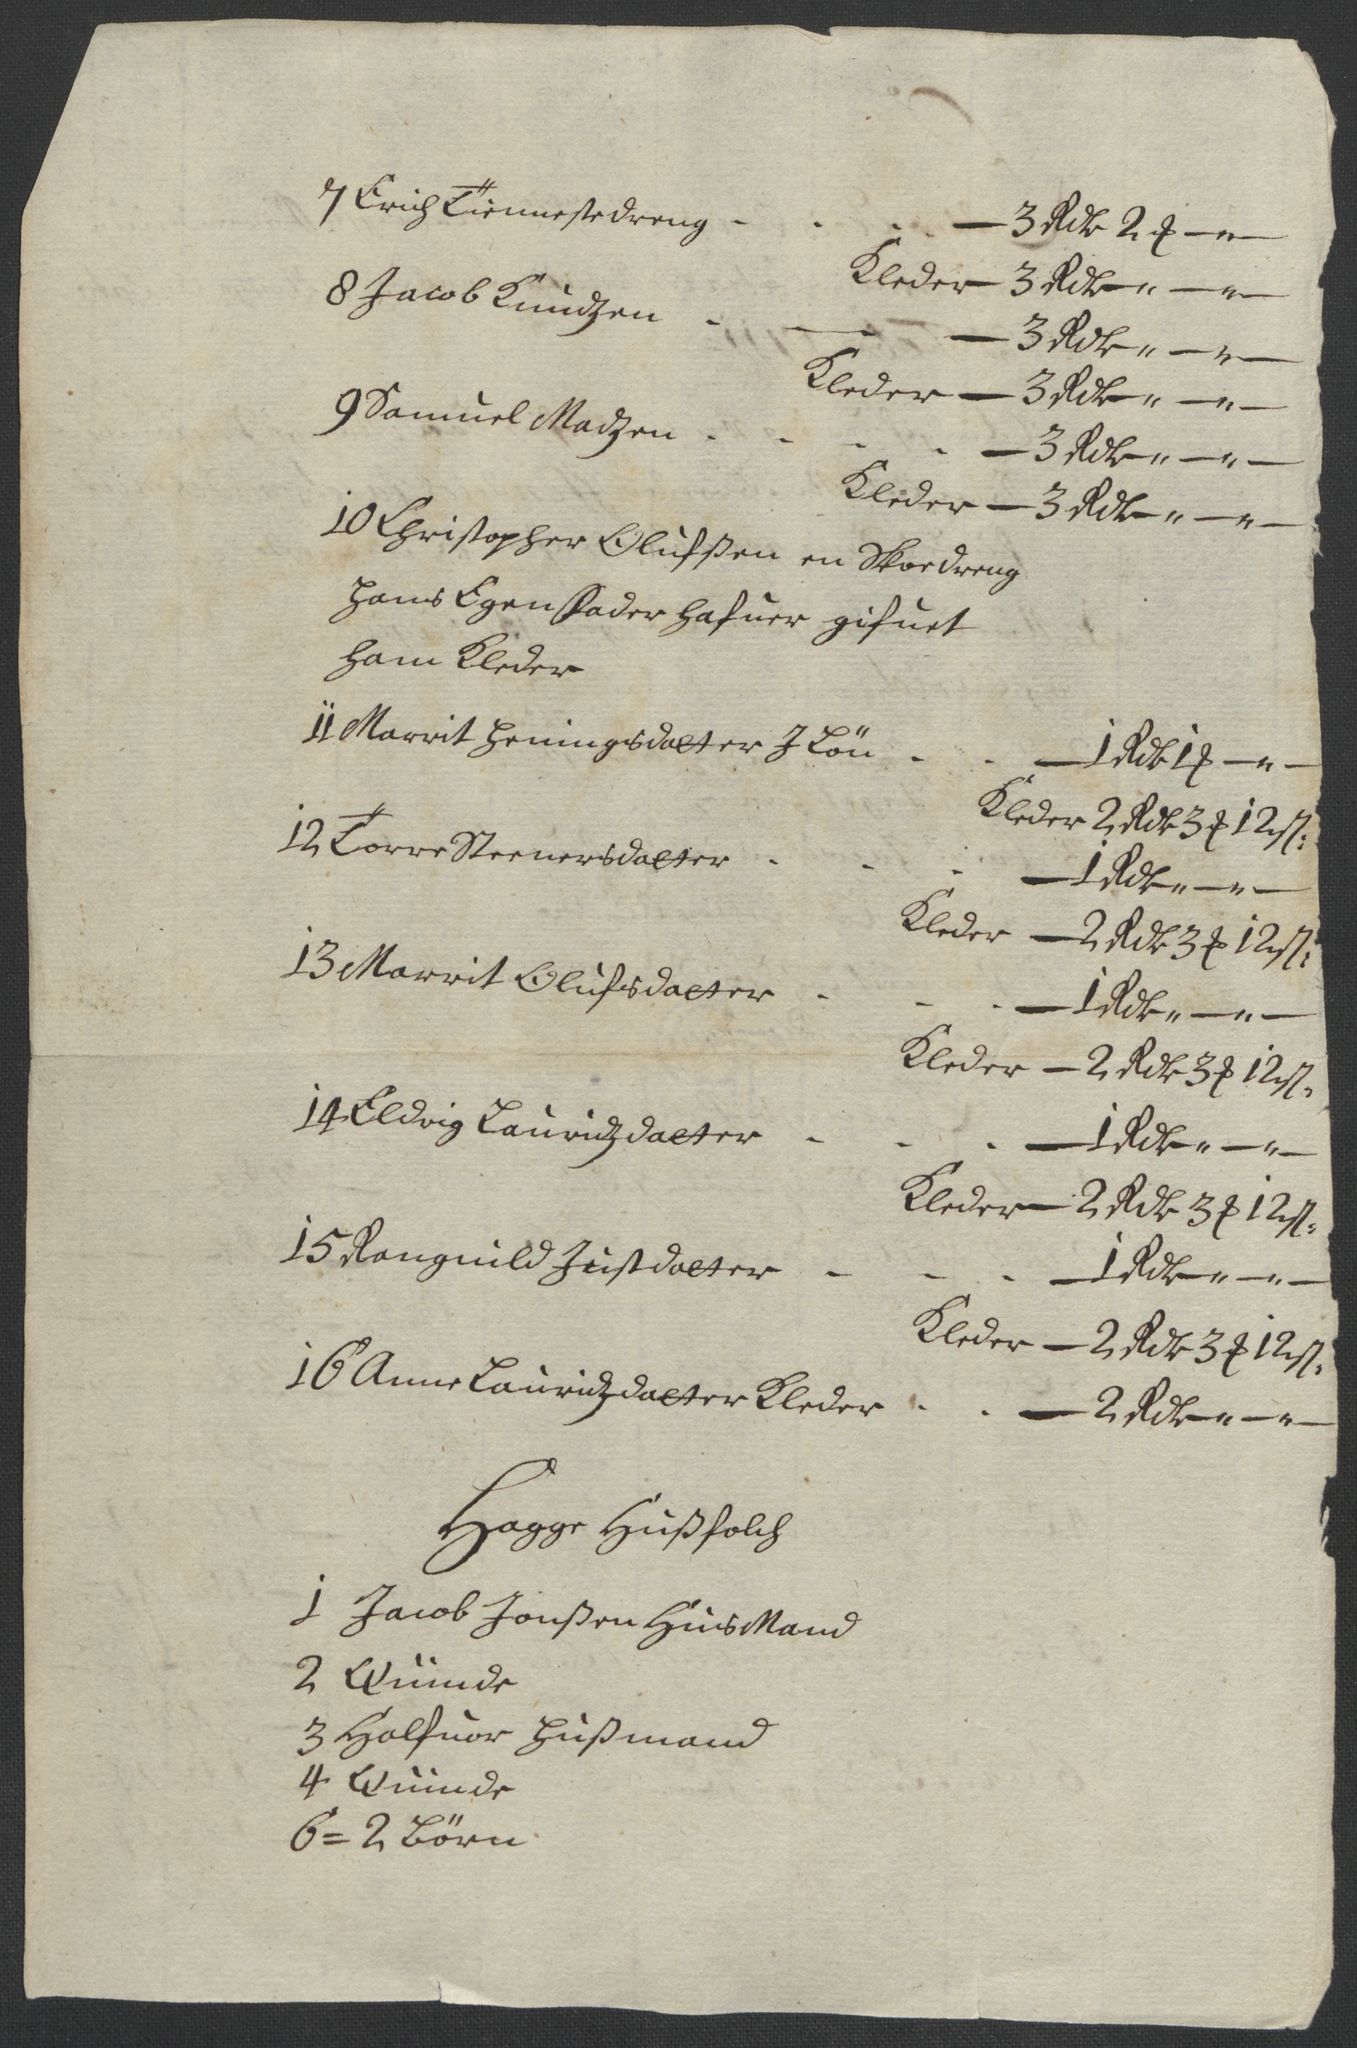 7 Erich Tiennestedreng - - - - 3 Rdr 2 ƒ — " —
Kleder — 3 Rdr " — " —
8 Jacob Knudzen - — 3 Rdr " — " —
Kleder — 3 Rdr " — " —
9 Samuel Madzen - - - - — 3 Rdr " — " —
Kleder — 3 Rdr " — " —
10 Christopher Olufßen en Skoedreng
hans Egen Fader hafuer gifuet
ham Kleder
11 Marrit Heningsdatter J Lön - - — 1 Rdr 1 ƒ — " —
Kleder 2 Rdr 3 ƒ 12 ß:
12 Torre Steenersdatter - - - — 1 Rdr " — " —
Kleder — 2 Rdr 3 ƒ 12 ß:
13 Marrit Olufsdatter - - - — 1 Rdr " — " —
Kleder — 2 Rdr 3 ƒ 12 ß:
14 Eldrig Lauridzdatter - - - — 1 Rdr " — " —
Kleder — 2 Rdr 3 ƒ 12 ß:
15 Rangnild Justdatter - - - — 1 Rdr " — " —
Kleder — 2 Rdr 3 ƒ 12 ß:
16 Anne Lauridzdatter Kleder - - — 2 Rdr " — " —
Hagge Hußfolch
1 Jacob Jonßen HuusMand
2 Quinde
3 Halfuor Hußmand
4 Quinde
6 = 2 Börn